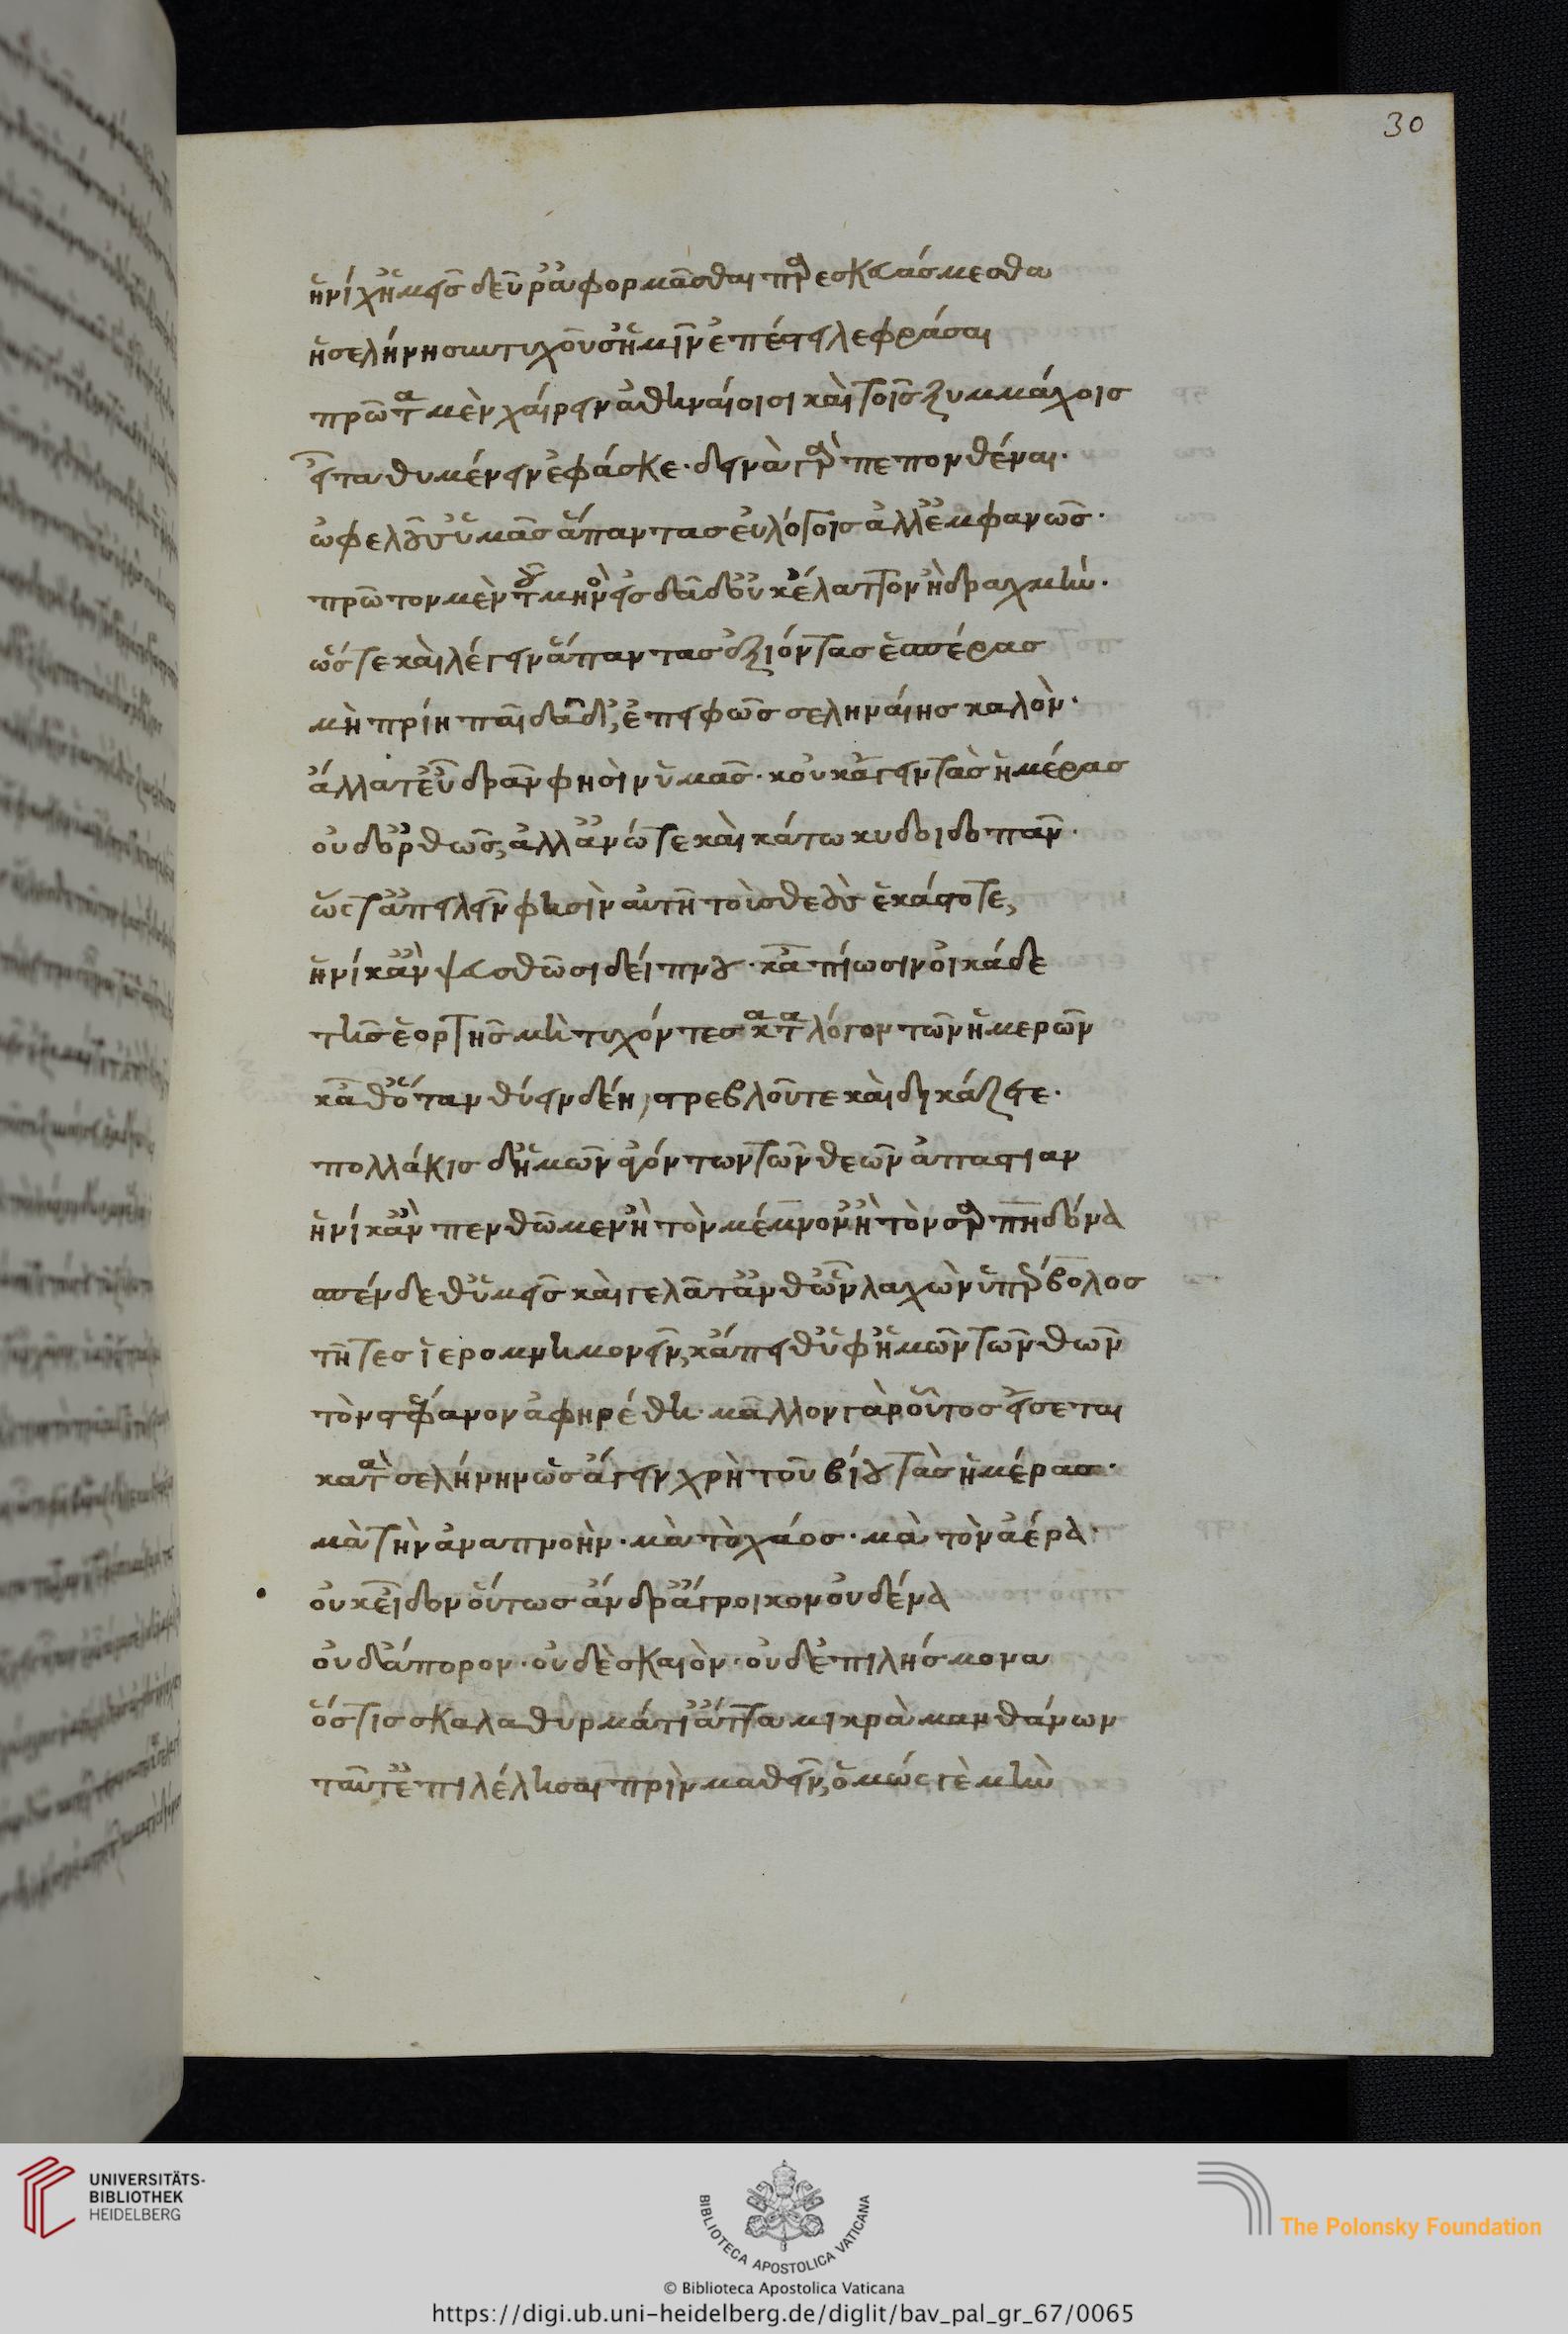 30
ἡνίχ' ἡμεῖς δεῦρ' ἀφορμᾶσθαι παρεσκευάσμεσθα
ἡ σελήνη συντυχοῦσ' ἡμῖν ἐπέστειλε φράσαι
πρῶτα μὲν χαίρειν ἀθηναίοισι καὶ τοῖς ξυμμάχοις
εἶτα θυμαίνειν ἔφασκε· δεινὰ γὰρ πεπονθέναι·
ὠφελοῦσ' ὑμᾶς ἅπαντας οὐ λόγοις ἀλλ' ἐμφανῶς·
πρῶτον μὲν τοῦ μηνὸς εἰς δᾷδ' οὐκ ἔλαττον ἢ δραχμήν·
ὥστε καὶ λέγειν ἅπαντας ἐξιόντας ἑσπέρας
μὴ πρίη παῖ δᾷδ', ἐπεὶ φῶς σεληναίης καλὸν·
ἄλλα τ' εὖ δρᾶν φησὶν ὑμᾶς· κοὐκ ἄγειν τὰς ἡμέρας
οὐδὲν ὀρθῶς, ἀλλ' ἄνω τε καὶ κάτω κυδοιδοπᾶν·
ὥστ' ἀπειλεῖν φησὶν αὐτῇ τοὺς θεοὺς ἑκάστοτε,
ἡνίκ' ἂν ψευσθῶσι δείπνου· κἀπίωσιν οἴκαδε
τῆς ἑορτῆς μὴ τυχόντες κατὰ λόγον τῶν ἡμερῶν
κᾆθ' ὅταν θύειν δέῃ, στρεβλοῦτε καὶ δικάζετε·
πολλάκις δ' ἡμῶν ἀγόντων τῶν θεῶν ἀπαστίαν
ἡνίκ' ἂν πενθῶμεν ἢ τὸν μέμνον' ἢ τὸν σαρπηδόνα
σπένδεθ' ὑμεῖς καὶ γελᾶτ' ἀνθ' ὧν λαχὼν ὑπέρβολος
τῆτες ἱερομνημονεῖν, κἄπειθ' ὑφ' ἡμῶν τῶν θεῶν
τὸν στέφανον ἀφῃρέθη· μᾶλλον γὰρ οὕτως εἴσεται
κατὰ σελήνην ὡς ἄγειν χρὴ τοῦ βίου τὰς ἡμέρας·
μὰ τὴν ἀναπνοὴν· μὰ τὸ χάος· μὰ τὸν ἀέρα·
οὐκ εἶδον οὕτως ἄνδρ' ἄγροικον οὐδένα
οὐδ' ἄπορον· οὐδὲ σκαιὸν· οὐδ' ἐπιλήσμονα
ὅστις σκαλαθυρμάτι' ἄττα μικρὰ μανθάνων
ταῦτ' ἐπιλέλησται πρὶν μαθεῖν, ὅμως γε μὴν
UNIVERSITÄTS-
BIBLIOTHEK
HEIDELBERG
BIBLIOTECA APOSTOLICA VATICANA
The Polonsky Foundation
© Biblioteca Apostolica Vaticana
https://digi.ub.uni-heidelberg.de/diglit/bav_pal_gr_67/0065